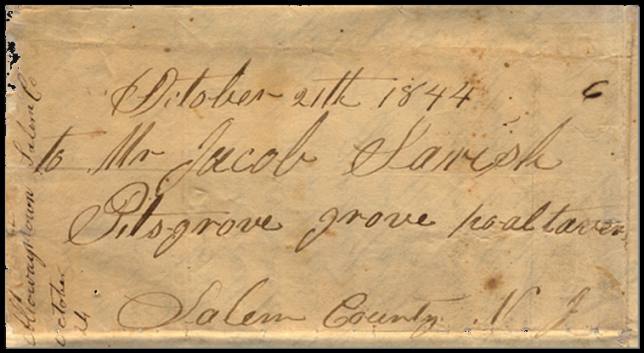 October 21th 1844
6
to Mr Jacob Parish
Pitsgrove grove poaltaven
Salem County N J
Allowaystown Salem Co
october
24